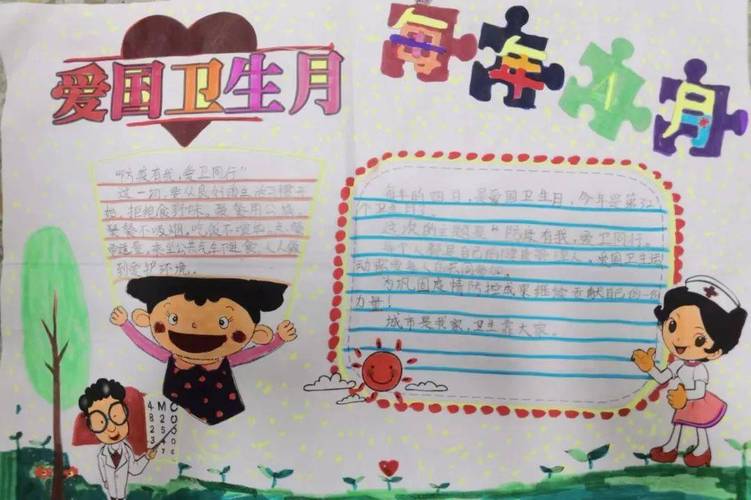 爱国卫生月
每年4月
"防疫有我，爱卫同行"
这一切，要从良好的生活习惯开
始，拒绝食野味，聚餐用公筷，
聚餐不吸烟，吃饭不喧哗，光餐
到爱护环境。
每年的四月，是爱国卫生月，今年是第32
个卫生月。
这次的主题是"防疫有我，爱卫同行。
每个人都是自己的健康管理人。爱国卫生运
动需要
为巩固疫情防控成果继续贡献自己的一份
力量！
城市是我家，卫生靠大家。
4 M C
8 2
2 5
3